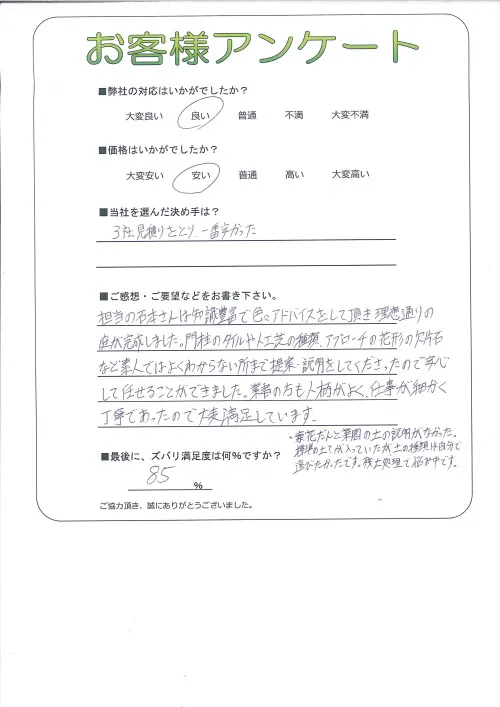 お客様アンケート
■弊社の対応はいかがでしたか？
大変良い 良い 普通 不満 大変不満
■価格はいかがでしたか？
大変安い 安い 普通 高い 大変高い
■当社を選んだ決め手は？
3社見積りをとり、一番安かった
■ご感想・ご要望などをお書き下さい。
担当の石本さんは知識豊富で色々アドバイスをして頂き理想通りの
庭が完成しました。門柱のタイルや人工芝の種類、アプローチの花形の欠片石
など素人ではよくわからない所まで提案・説明をしてくださったので安心
して任せることができました。業者の方も人柄がよく、仕事が細かく
丁寧であったので大変満足しています。
・家花だんと菜園の土の説明がなかった。
標準の土が入っていたが土の種類は自分で
選びたかったです。残土処理で悩み中です。
■最後に、ズバリ満足度は何％ですか？
85 ％
ご協力頂き、誠にありがとうございました。